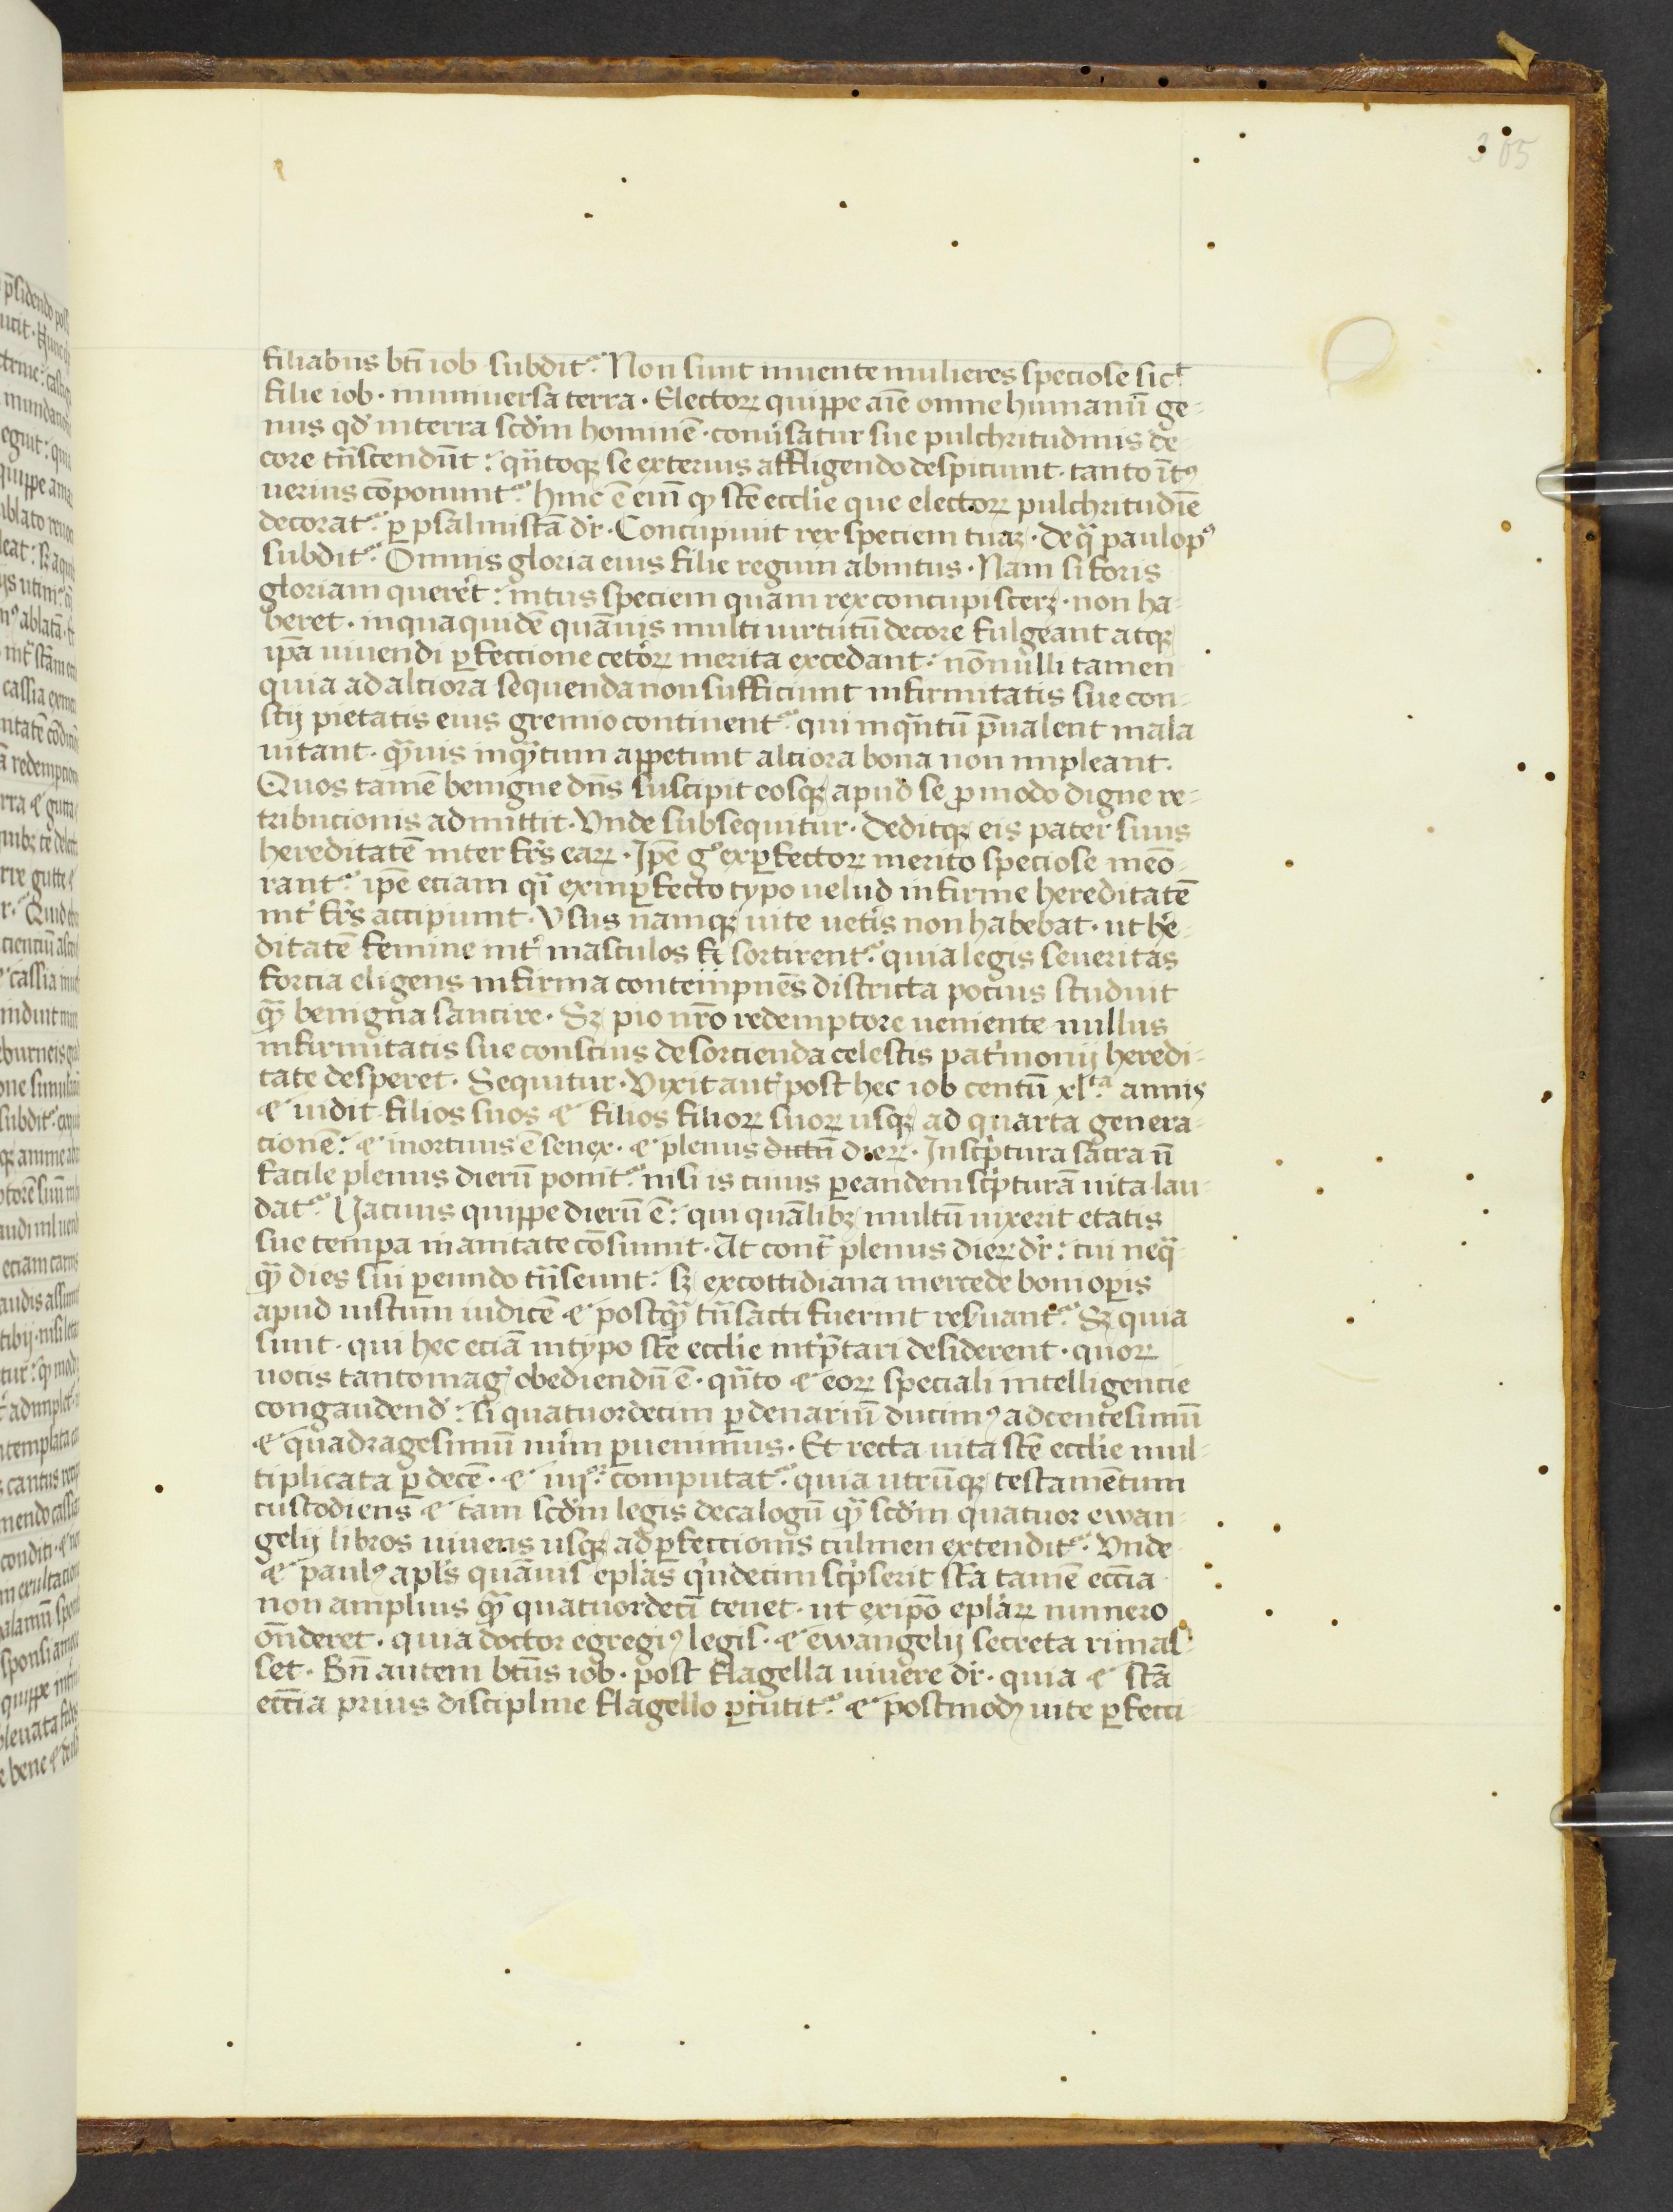 305
filiabus bti̅ iob subdit᷑. Non sunt inuente mulieres speciose sict̕
filie iob · in uniuersa terra · Electoꝝ quippe aīe omne humanū ge-
nus qd̕ in terra scd̕m hominē · conu̕satur sue pulchritudinis de-
core tn̅scendūt : qn̅toqꝫ se exterius affligendo despiciunt · tanto īt᷒
uerius cōponunt᷑. hinc ē eni̅ ꝙ stē eccl̕ie que electoꝝ pulchritudīe
decorat᷑. ꝑ psalmistā dr̕ · Concupiuit rex speciem tuaꝫ · de qᷓ paulo p᷒
subdit᷑. Omnis gloria eius filie regum ab intus · Nam si foris
gloriam quereret : intus speciem quam rex concupisceꝫ · non ha-
beret · in qua quidē quāuis multi uirtutū decore fulgeant atqꝫ
ip̄a uiuendi ꝑfeccione cet̕oꝝ merita excedant : nōnulli tamen
quia ad alciora sequenda non sufficiunt infirmitatis sue con-
scij pietatis eius gremio continent᷑. qui inqᷓntū p̄ualent mala
uitant · qᷓuis inqᷓtum appetunt alciora bona non impleant.
Quos tamē benigne dn̄s suscipit eosqꝫ apud se ꝓ modo digne re-
tribucionis admittit · Vnde subsequitur · deditqꝫ eis pater suus
hereditatē inter fr̄s eaꝝ · Ip̄e gͦ ex ꝑfectoꝝ merito speciose meō-
rant᷑. ip̄e eciam qᷓi ex inꝑfecto typo uelud infirme hereditatē
int̕ fr̄s accipiunt · Vsus namqꝫ uite uet̕is non habebat · ut he̕-
ditatē femine int̕ masculos  sortirent᷑. quia legis seueritas
forcia eligens infirma contempnēs districta pocius studuit
qᷓ benigna sancire · Sꝫ pio nr̄o redemptore ueniente nullus
infirmitatis sue conscius de sorcienda celestis pat̕monij heredi-
tate desperet · Sequitur · Vixit aut̕ post hec iob centū xl.ᵗᵃ annis
et uidit filios suos et filios filioꝝ suoꝝ usqꝫ ad quarta genera-
cionē : et mortuus ē senex · et plenus dictū dieꝝ · In scp̕tura sacra n̅
facile plenus dierū ponit᷑. nisi is cuius ꝑ eandem scp̕turā uita lau-
dat᷑. Uacuus quippe dierū ē : qui quālibꝫ multū uixerit etatis
sue tempa in anitate cōsumit · At cont̕ plenus dieꝝ dr̕ : cui neqᷓ-
qᷓ dies sui ꝑeundo tn̅seunt : sꝫ ex cottidiana mercede boni oꝑis
apud iustum iudicē et postqᷓ tn̅sacti fuerint resuant᷑. Sꝫ quia
sunt · qui hec eciā in typo stē eccl̕ie int̕p̄tari desiderent · quoꝝ
uocis tanto mag̕ obediendū ē · qn̅to et eoꝝ speciali intelligencie
congaudend̕ : si quatuordecim ꝑ denariū ducim᷒ ad centesimū
et quadragesimū num̕ ꝑuenimus · Et recta uita stē eccl̕ie mul-
tiplicata ꝑ decē · et iiij.ᵒʳ computat᷑. quia utrūqꝫ testamētum
custodiens et tam scd̕m legis decalogū qᷓ scd̕m quatuor ewan-
gelij libros uiuens usqꝫ ad ꝑfeccionis culmen extendit᷑. Vnde
et paul᷒ apl̕s quāuis epl̕as qi̕ndecim scp̕serit sc̄a tamē eccīa
non amplius qᷓ quatuordecī tenet · ut ex ip̄o epl̕aꝝ numero
on̄deret · quia doctor egregi᷒ legis · et ewangelij secreta rimas-
set · Bn̄ autem btūs iob · post flagella uiuere dr̕ · quia et stā
eccīa prius discipline flagello ꝑcutit᷑. et postmodꝫ uite ꝑfecci-